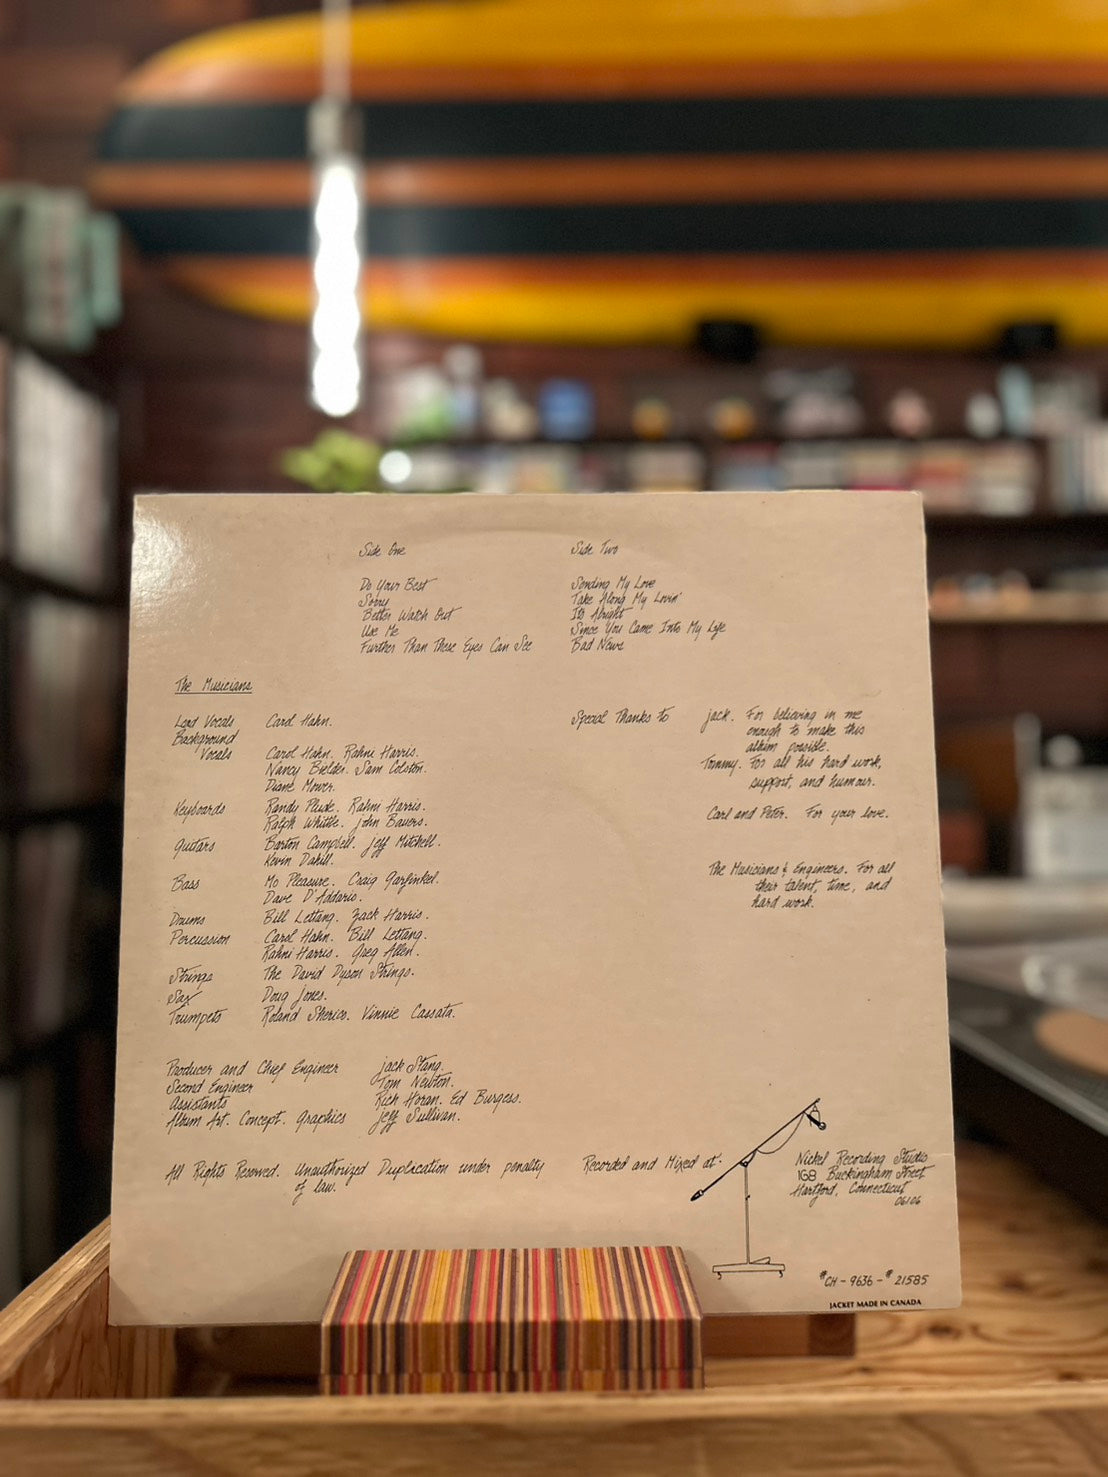 Side One
Do Your Best
Sorry
Better Watch Out
Use Me
Further Than These Eyes Can See
Side Two
Sending My Love
Take Along My Lovin'
Its Alright
Since You Came Into My Life
Bad News
The Musicians
Lead Vocals Carol Hahn.
Background
Vocals Carol Hahn. Rahni Harris.
Nancy Bielder. Sam Colston.
Diane Mower.
Keyboards Randy Plude. Rahni Harris.
Ralph Whittle. John Bauers.
Guitars Barton Campbell. Jeff Mitchell.
Kevin Dahill.
Bass Mo Pleasure. Craig Garfinkel.
Dave D'Addario.
Drums Bill Lettang. Zack Harris.
Percussion Carol Hahn. Bill Lettang.
Rahni Harris. Greg Allen.
Strings The David Dyson Strings.
Sax Doug Jones.
Trumpets Roland Sherico. Vinnie Cassata.
Special Thanks to Jack. For believing in me
enough to make this
album possible.
Tommy. For all his hard work,
support, and humour.
Carl and Peter. For your love.
The Musicians & Engineers. For all
their talent, time, and
hard work.
Producer and Chief Engineer Jack Stang.
Second Engineer Tom Newton.
Assistants Rich Horan. Ed Burgess.
Album Art. Concept. Graphics Jeff Sullivan.
All Rights Reserved. Unauthorized Duplication under penalty
of law.
Recorded and Mixed at.
Nickel Recording Studio
168 Buckingham Street
Hartford, Connecticut
06106
#CH-9636-#21585
JACKET MADE IN CANADA